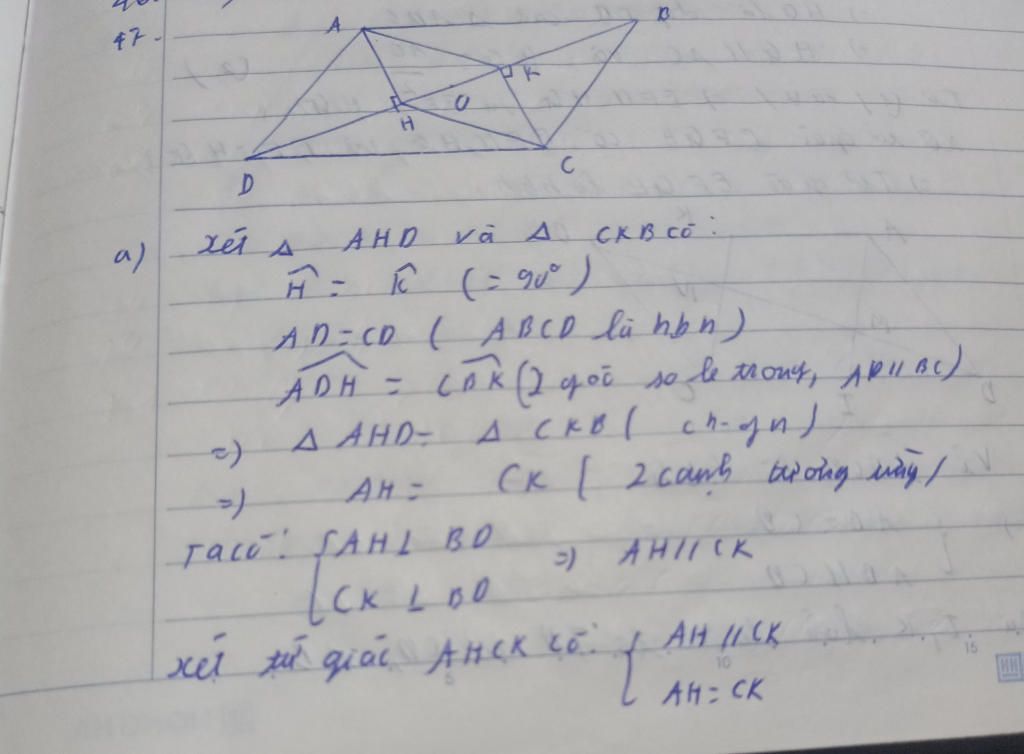 47-
A B
K
O
H
D C
a) Xét Δ AHD và Δ CKB có:
Ĥ = K̂ (= 90°)
AD = CD ( ABCD là hbh )
ADH = CBK (2 góc so le trong, AD // BC)
=) Δ AHD = Δ CKB ( ch - gn )
=) AH = CK ( 2 cạnh tương ứng )
Ta có: { AH ⊥ BD =) AH // CK
CK ⊥ BD
Xét tứ giác AHCK có: { AH // CK
AH = CK
10
15